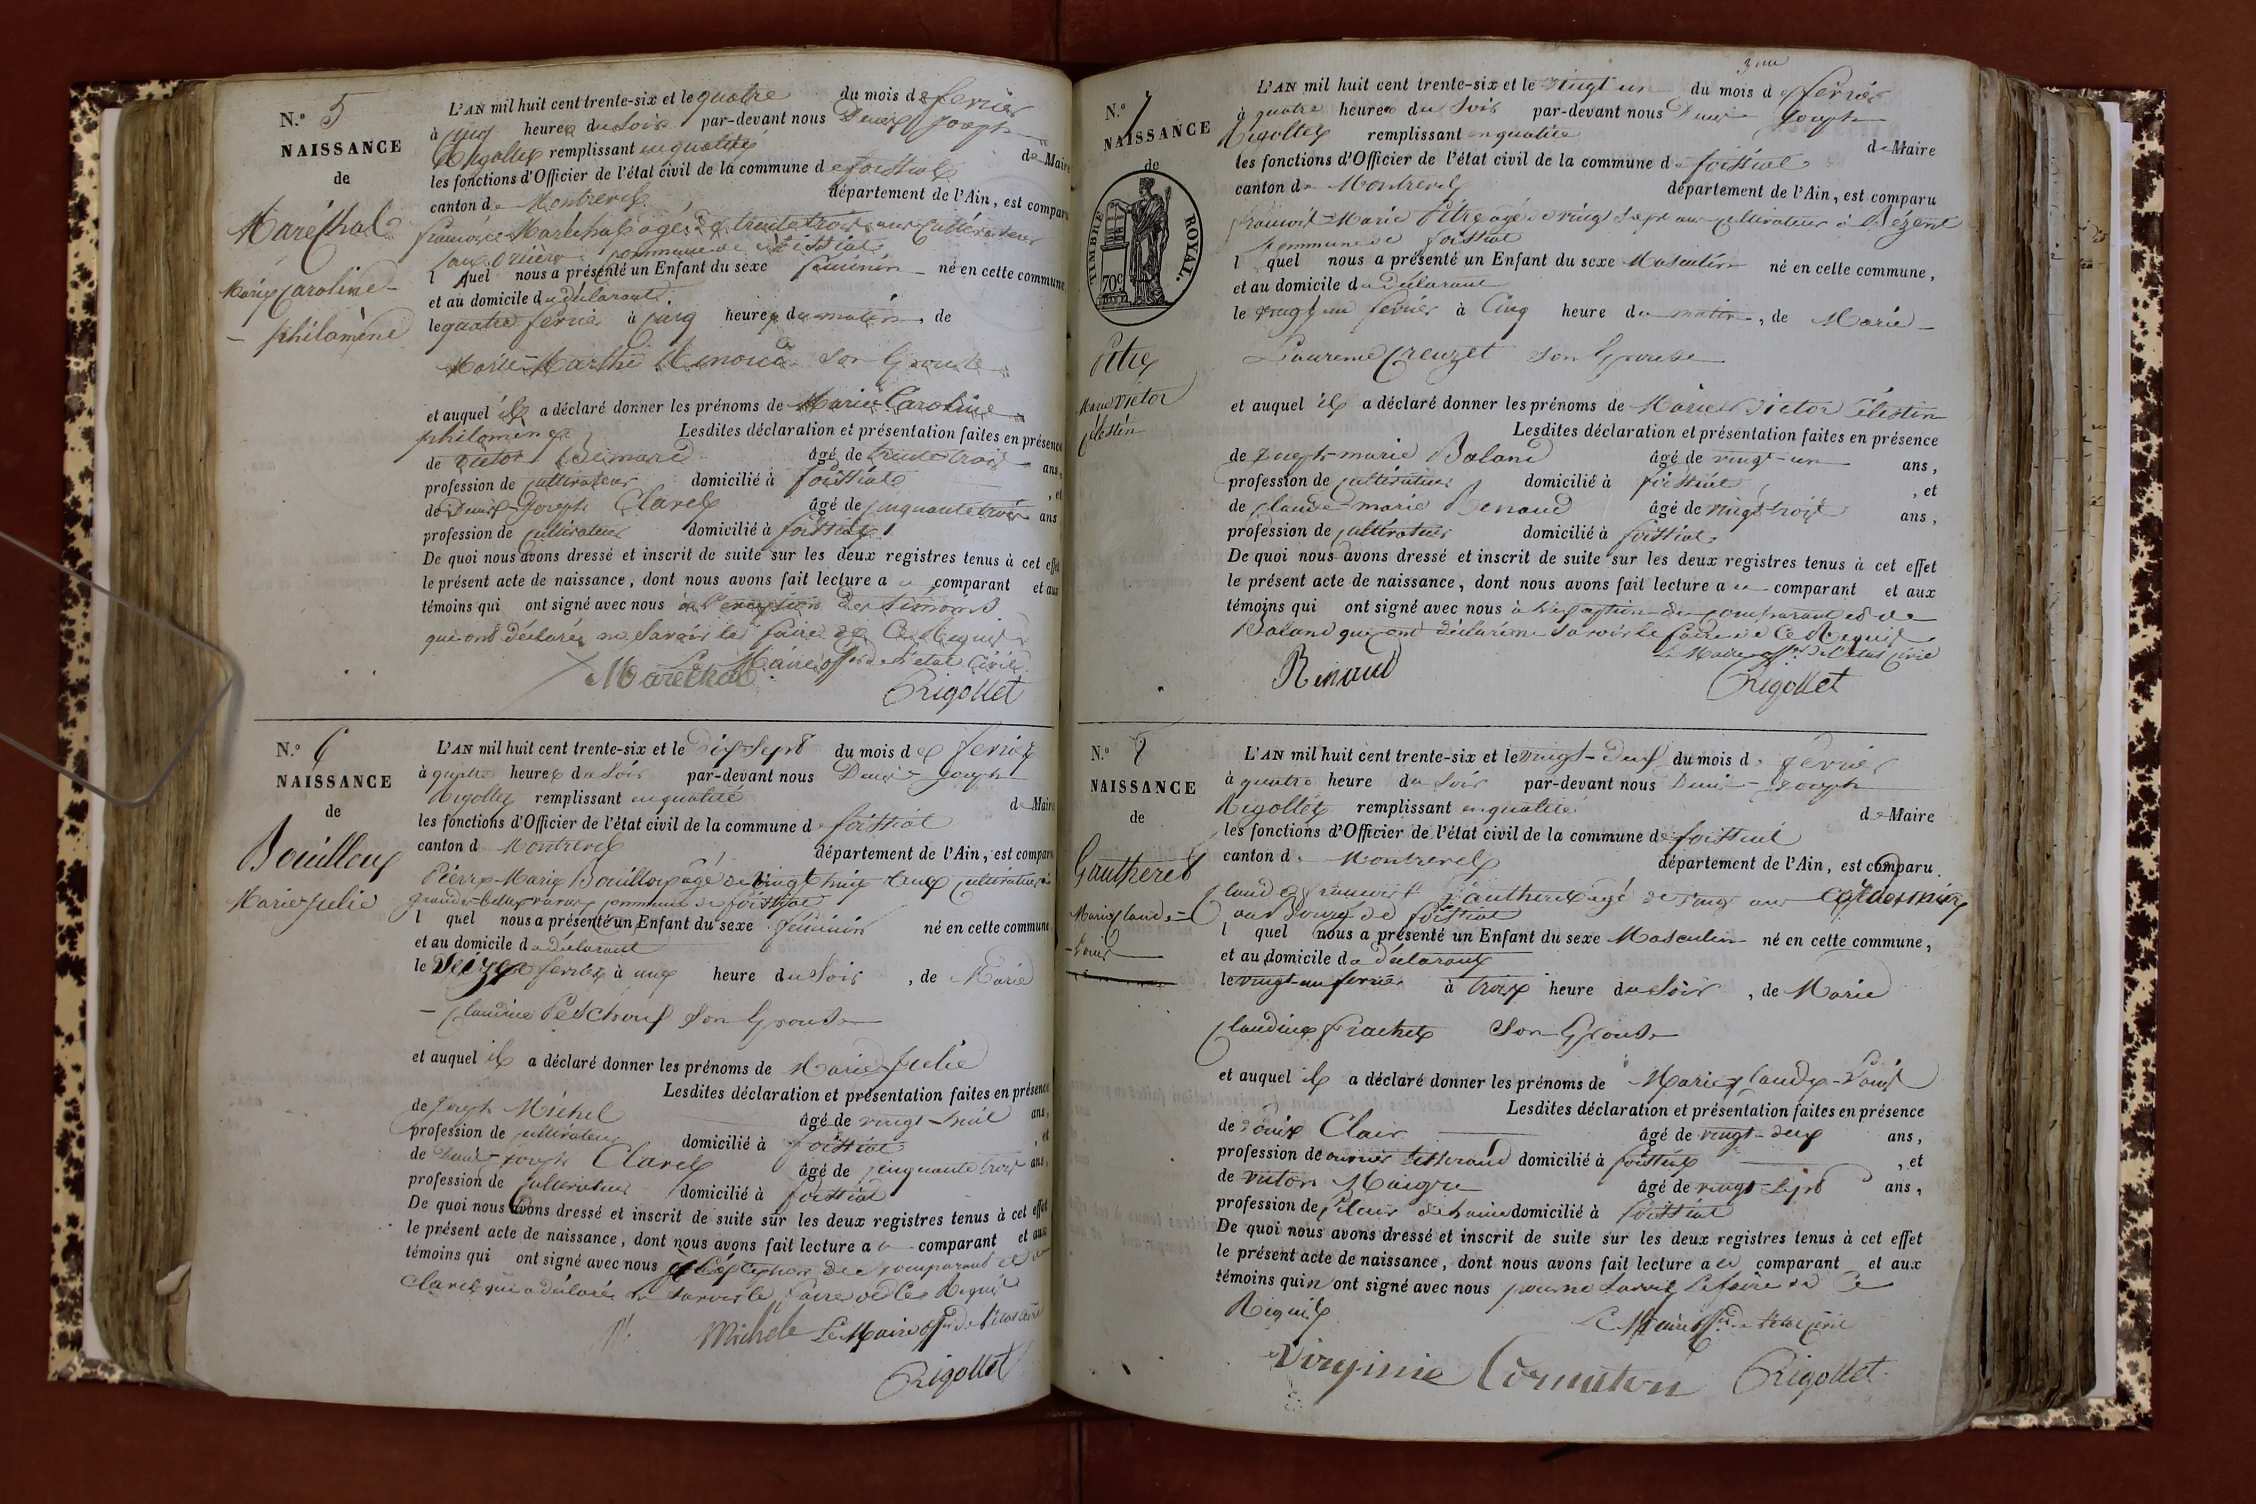 N.º 5
NAISSANCE
de
Maréchal
Marie Caroline
philomène
L'AN mil huit cent trente-six et le quatre du mois de fevrier
à cinq heures du soir par-devant nous Denis Joseph
Rigollet remplissant en qualité de Maire
les fonctions d'Officier de l'état civil de la commune de foissiat
canton de Montrevel département de l'Ain, est comparu
françois Maréchal agé de trente trois ans cultivateur
commune de foissiat
lequel nous a présenté un Enfant du sexe féminin né en cette commune
et au domicile du déclarant
le quatre fevrier à cinq heures du matin, de
Marie Marthe son Epouse
et auquel il a déclaré donner les prénoms de Marie Caroline
philomène Lesdites déclaration et présentation faites en présence
de victor âgé de trente trois ans,
profession de cultivateur domicilié à foissiat, et
de Denis Joseph Clarel âgé de cinquante trois ans
profession de cultivateur domicilié à foissiat
De quoi nous avons dressé et inscrit de suite sur les deux registres tenus à cet effet
le présent acte de naissance, dont nous avons fait lecture a comparant et aux
témoins qui ont signé avec nous à l'exception des témoins
qui ont déclaré ne savoir le faire de Ce Requis
Le Maire off. de l'etat Civil
Maréchal
Rigollet
N.º 6
NAISSANCE
de
Bouilloux
Marie Julie
L'AN mil huit cent trente-six et le Dix sept du mois de fevrier
à quatre heures du soir par-devant nous Denis Joseph
Rigollet remplissant en qualité de Maire
les fonctions d'Officier de l'état civil de la commune de foissiat
canton de Montrevel département de l'Ain, est comparu
Pierre Marie Bouilloux agé de vingt huit ans cultivateur
commune de foissiat
lequel nous a présenté un Enfant du sexe féminin né en cette commune
et au domicile du déclarant
le Seize fevrier à heure du soir, de Marie
Claudine son Epouse
et auquel il a déclaré donner les prénoms de Marie Julie
Lesdites déclaration et présentation faites en présence
de Joseph Michel âgé de vingt-huit ans,
profession de cultivateur domicilié à foissiat, et
de Denis Joseph Clarel âgé de cinquante trois ans,
profession de cultivateur domicilié à foissiat
De quoi nous avons dressé et inscrit de suite sur les deux registres tenus à cet effet
le présent acte de naissance, dont nous avons fait lecture a comparant et aux
témoins qui ont signé avec nous à l'exception du comparant et de
Clarel qui a déclaré ne savoir le faire de Ce Requis
Michel Le Maire off. de l'etat civil
Rigollet
N.º 7
NAISSANCE
de
TIMBRE ROYAL.
70c
Pitre
Marie victor
Célestin
L'AN mil huit cent trente-six et le vingt un du mois de fevrier
à quatre heures du soir par-devant nous Denis Joseph
Rigollet remplissant en qualité de Maire
les fonctions d'Officier de l'état civil de la commune de foissiat
canton de Montrevel département de l'Ain, est comparu
françois-Marie Pitre agé de vingt sept ans cultivateur à
commune de foissiat
lequel nous a présenté un Enfant du sexe Masculin né en cette commune,
et au domicile du Déclarant
le vingt un fevrier à Cinq heure du matin, de Marie
Laurence Creuzet son Epouse
et auquel il a déclaré donner les prénoms de Marie Victor Célestin
Lesdites déclaration et présentation faites en présence
de Joseph marie Baland âgé de vingt-un ans,
profession de cultivateur domicilié à foissiat, et
de Claude-marie Renaud âgé de vingt trois ans,
profession de cultivateur domicilié à foissiat
De quoi nous avons dressé et inscrit de suite sur les deux registres tenus à cet effet
le présent acte de naissance, dont nous avons fait lecture a comparant et aux
témoins qui ont signé avec nous à l'exception du comparant et de
Baland qui ont déclaré ne savoir le faire de Ce Requis
Le Maire off. de l'etat civil
Renaud
Rigollet
N.º 8
NAISSANCE
de
Gautheret
Marie Claude
Louis
L'AN mil huit cent trente-six et le vingt-deux du mois de fevrier
à quatre heure du soir par-devant nous Denis Joseph
Rigollet remplissant en qualité de Maire
les fonctions d'Officier de l'état civil de la commune de foissiat
canton de Montrevel département de l'Ain, est comparu
Claude françois Gautheret agé de vingt ans cordonnier
au Bourg de foissiat
lequel nous a présenté un Enfant du sexe Masculin né en cette commune,
et au domicile du déclarant
le vingt-un fevrier à trois heure du soir, de Marie
Claudine son Epouse
et auquel il a déclaré donner les prénoms de Marie Claude-Louis
Lesdites déclaration et présentation faites en présence
de Louis Clair âgé de vingt-deux ans,
profession de ouvrier tisserand domicilié à foissiat, et
de victor âgé de vingt sept ans,
profession de domicilié à foissiat
De quoi nous avons dressé et inscrit de suite sur les deux registres tenus à cet effet
le présent acte de naissance, dont nous avons fait lecture a comparant et aux
témoins qui n'ont signé avec nous pour ne savoir le faire de Ce
Requis
Le Maire off. de l'etat civil
Virginie Cormaton Rigollet